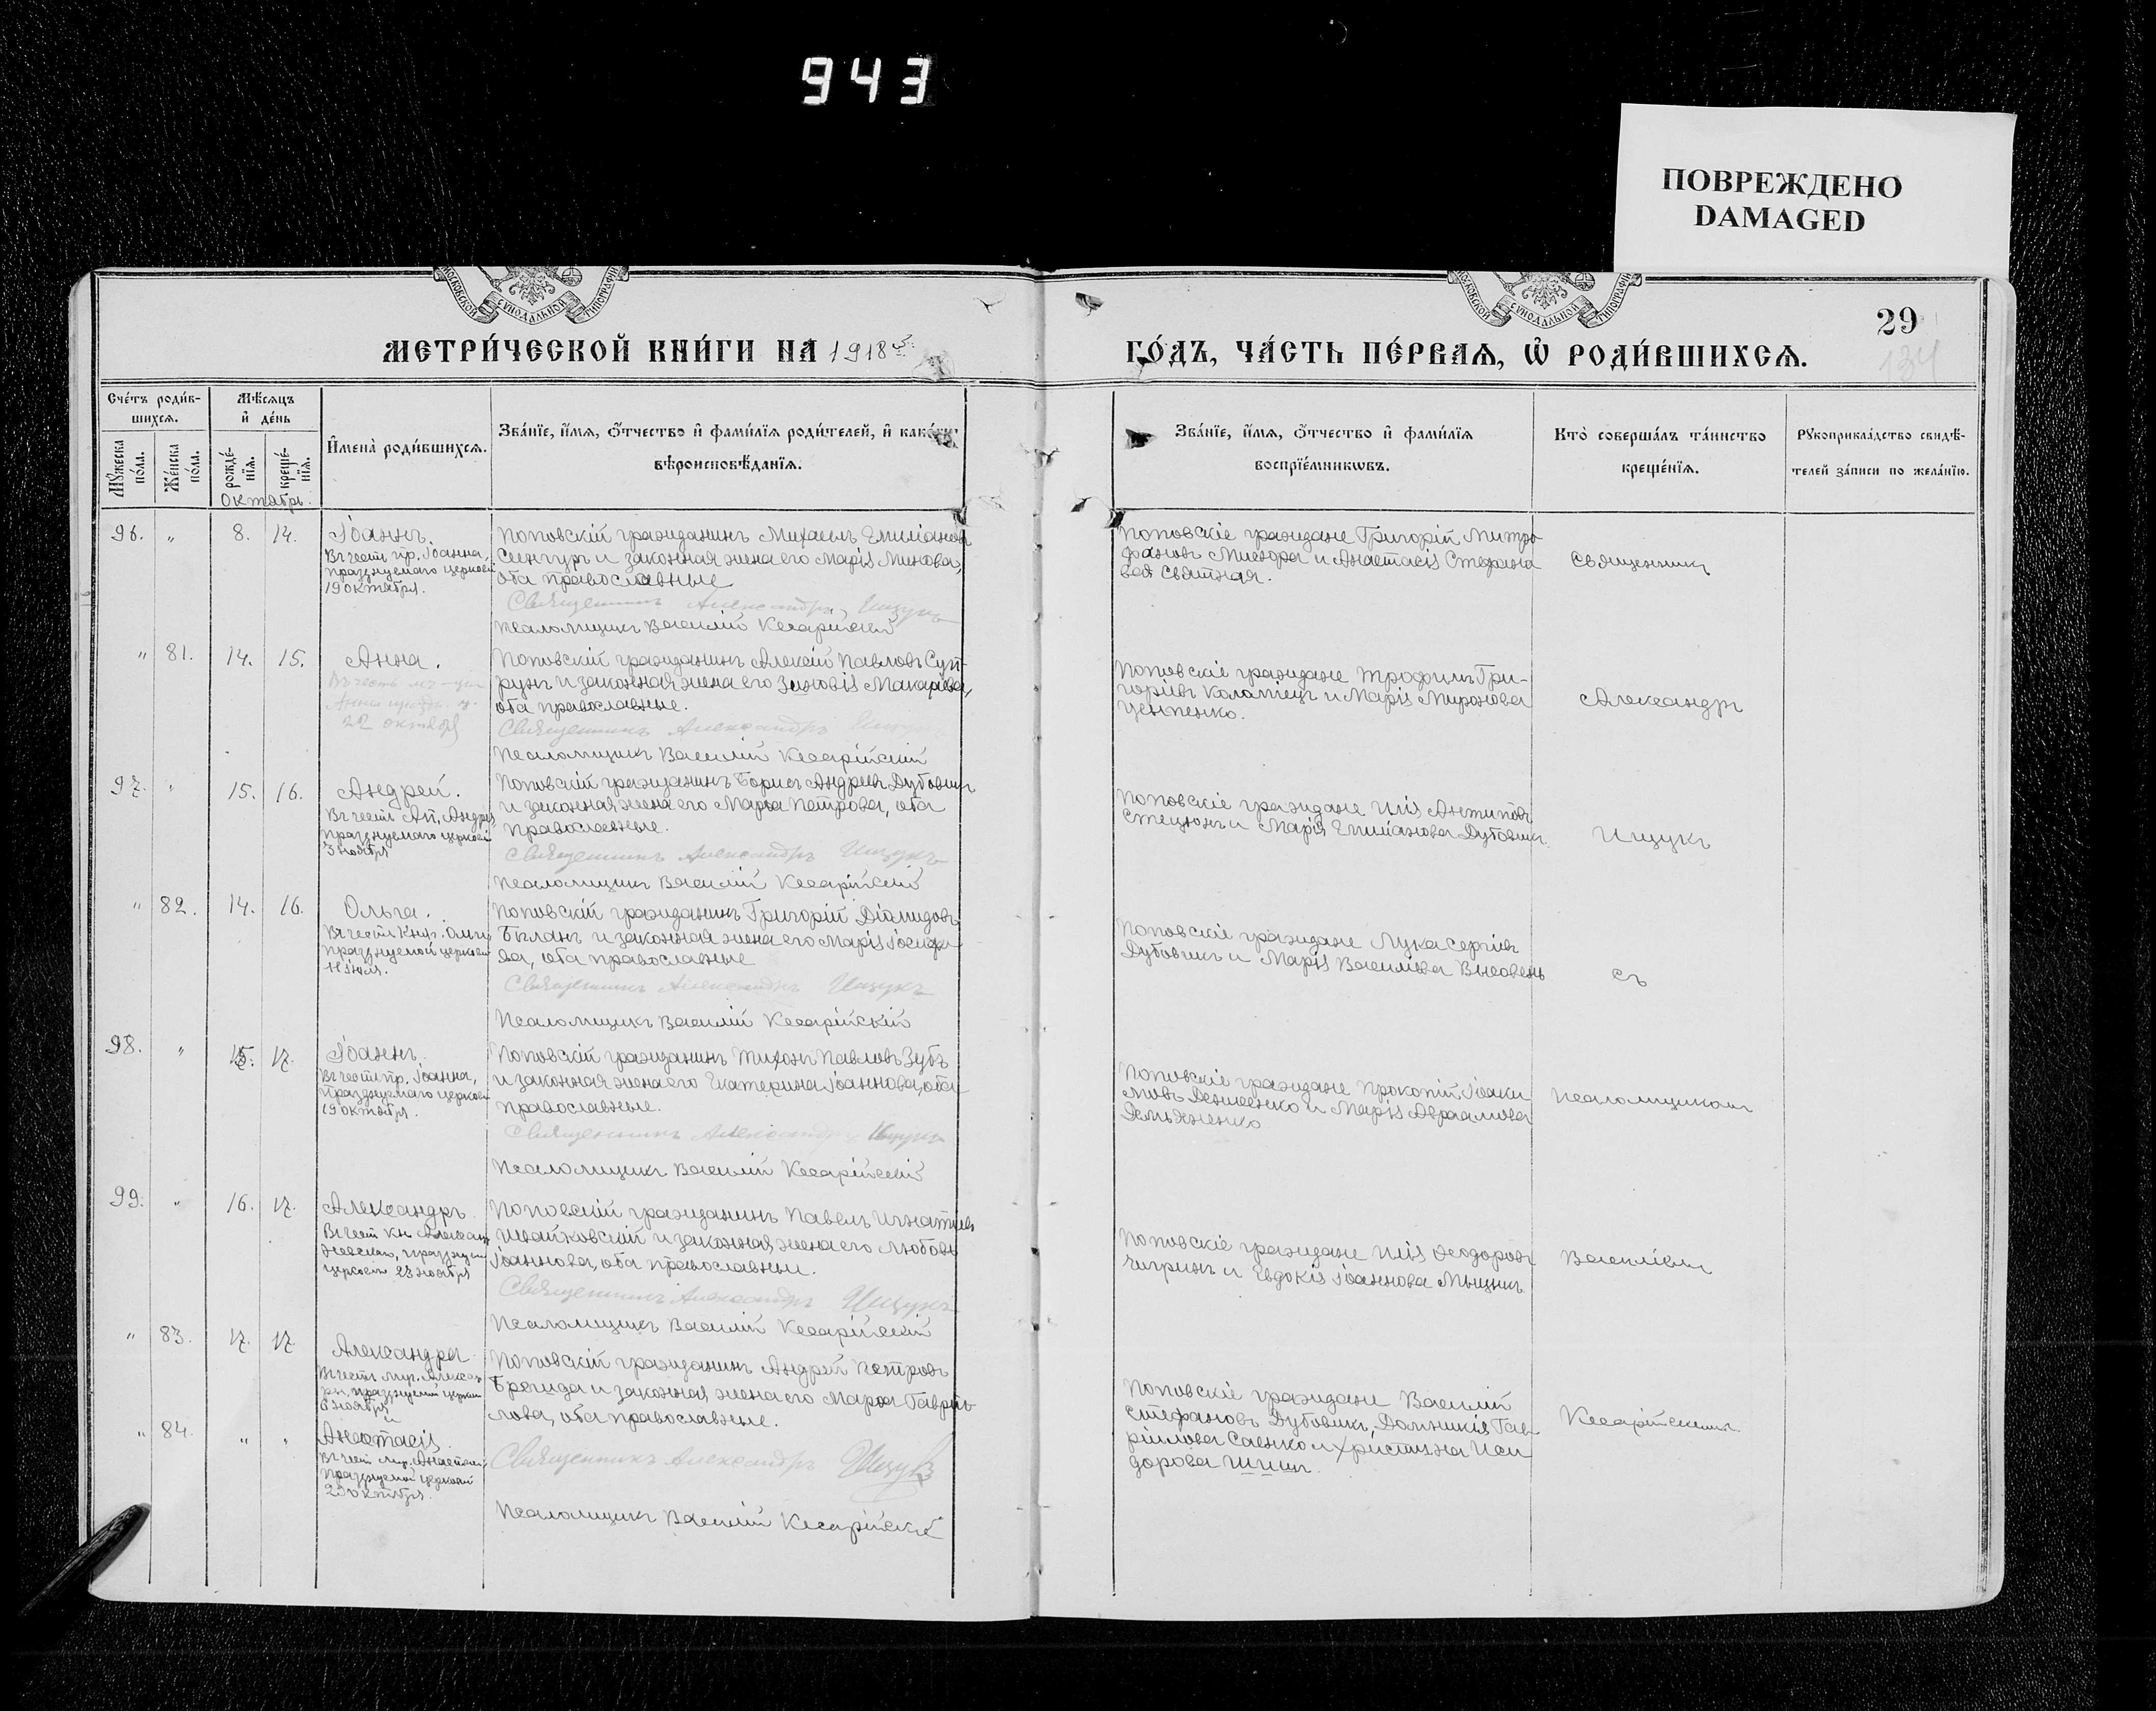 943
ПОВРЕЖДЕНО
DAMAGED
МОСКОВСКОЙ СѴНОДАЛЬНОЙ ТИПОГРАФІИ
МОСКОВСКОЙ СѴНОДАЛЬНОЙ ТИПОГРАФІИ
29
134
МЕТРИ́ЧЕСКОЙ КНИ́ГИ НА 1918 й
ГО́ДЪ, ЧА́СТЬ ПЕ́РВАѦ, Ѡ҆ РОДИ́ВШИХСѦ.
Сче́тъ роди́в-
шихсѧ.
Му́жеска по́ла.
Же́нска по́ла.
Мѣ́сѧцъ
и҆ де́нь
рожде́-
нїѧ.
креще́-
нїѧ.
Октябрь.
И҆мена̀ роди́вшихсѧ.
Зва́нїе, и҆́мѧ, ѻ҆́тчество и҆ фами́лїѧ роди́телей, и҆ како́гѡ
вѣроисповѣ́данїѧ.
Зва́нїе, и҆́мѧ, ѻ҆́тчество и҆ фами́лїѧ
воспрїе́мникѡвъ.
Кто̀ соверша́лъ та́инство
креще́нїѧ.
Рꙋкоприкла́дство свидѣ́-
телей за́писи по жела́нїю.
96. " 8. 14.
Іоаннъ.
Въ честь пр. Іоанна,
празднуемаго церковію
19 октября.
Поповскій гражданинъ Михаилъ Емиліановъ
Сенгуръ и законная жена его Марія Минова,
оба православные
Священникъ Александръ Ищукъ
Псаломщикъ Василій Кесарійскій
Поповскіе граждане Григорій Митро-
фановъ и Анастасія Стефано-
ва Святная.
Священникъ
" 81. 14. 15.
Анна.
Въ честь
Анны
22 октября
Поповскій гражданинъ Алексій Павловъ Суп-
рунъ и законная жена его Зиновія Макаріева,
оба православные.
Священникъ Александръ Ищукъ
Псаломщикъ Василій Кесарійскій
Поповскіе граждане Трофимъ Гри-
горіевъ Коломіецъ и Марія Миронова
Александръ
97. " 15. 16.
Андрей.
Въ честь Ап. Андрея,
празднуемаго церковію
3 ноября
Поповскій гражданинъ Борисъ Андреевъ Дубовикъ
и законная жена его Марѳа Петрова, оба
православные.
Священникъ Александръ Ищукъ
Псаломщикъ Василій Кесарійскій
Поповскіе граждане Илія Антиповъ
Стецюнъ и Марія Емиліанова Дубовикъ.
Ищукъ
" 82. 14. 16.
Ольга.
Въ честь Княг. Ольги,
празднуемой церковію
11 іюля.
Поповскій гражданинъ Григорій Діомидовъ
Быланъ и законная жена его Марія Іосифо-
ва, оба православные
Священникъ Александръ Ищукъ
Псаломщикъ Василій Кесарійскій
Поповскіе граждане Лука Сергіевъ
Дубовикъ и Марія Василіева
съ
98. " 15. 17.
Іоаннъ.
Въ честь пр. Іоанна,
празднуемаго церковію
19 октября.
Поповскій гражданинъ Тихонъ Павловъ Зубъ
и законная жена его Екатерина Іоаннова, оба
православные.
Священникъ Александръ Ищукъ
Псаломщикъ Василій Кесарійскій
Поповскіе граждане Прокопій Іоаки-
мовъ и Марія Авраамова
Демьяненко
псаломщикомъ
99. " 16. 17.
Александръ
Въ честь Кн. Александра
Невскаго, празднуем.
церковію 23 ноября
Поповскій гражданинъ Павелъ Игнатіевъ
и законная жена его Любовь
Іоаннова, оба православные.
Священникъ Александръ Ищукъ
Псаломщикъ Василій Кесарійскій
Поповскіе граждане Илія Ѳеодоровъ
Чигринъ и Евдокія Іоаннова Мыцикъ
Василіемъ
" 83. 17. 17.
Александра
Въ честь муч. Александ-
ры, празднуемой церков.
6 ноября
и
Поповскій гражданинъ Андрей Петровъ
Брегида и законная жена его Марѳа Гаврии-
лова, оба православные.
" 84. " "
Анастасія.
Въ честь муч. Анастасіи,
празднуемой церковію
29 октября.
Священникъ Александръ Ищукъ
Псаломщикъ Василій Кесарійскій
Поповскіе граждане Василій
Стефановъ Дубовикъ, Домникія Гав-
ріилова Саенко и Христина Иси-
дорова Шишъ.
Кесарійскимъ